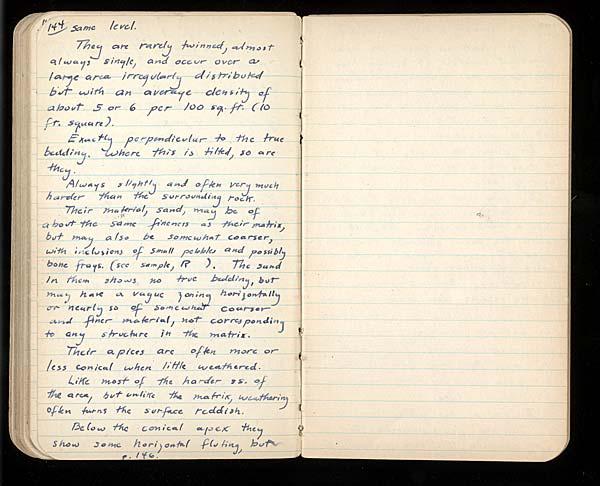 144 same level.
They are rarely twinned, almost
always single, and occur over a
large area irregularly distributed
but with an average density of
about 5 or 6 per 100 sq. ft. (10
ft. square).
Exactly perpendicular to the true
bedding. Where this is tilted, so are
they.
Always slightly and often very much
harder than the surrounding rock.
Their material, sand, may be of
about the same fineness as their matrix,
but may also be somewhat coarser,
with inclusions of small pebbles and possibly
bone frags. (see sample, R ). The sand
in them shows no true bedding, but
may have a vague zoning horizontally
or nearly so of somewhat coarser
and finer material, not corresponding
to any structure in the matrix.
Their apices are often more or
less conical when little weathered.
Like most of the harder ss. of
the area, but unlike the matrix, weathering
often turns the surface reddish.
Below the conical apex they
show some horizontal fluting, but
p. 146.